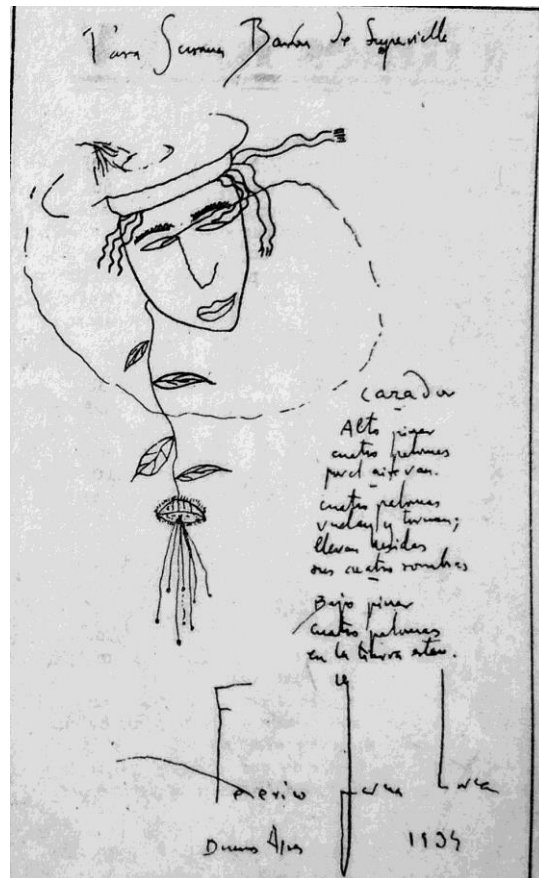 Para Susana Barón de Supervielle
Cazador
Alto pinar
cuatro palomas
por el aire van.
cuatro palomas
vuelan y tornan;
llevan heridas
sus cuatro sombras
Bajo pinar
cuatro palomas
en la tierra estan.
Federico Garcia Lorca
Buenos Aires 1934